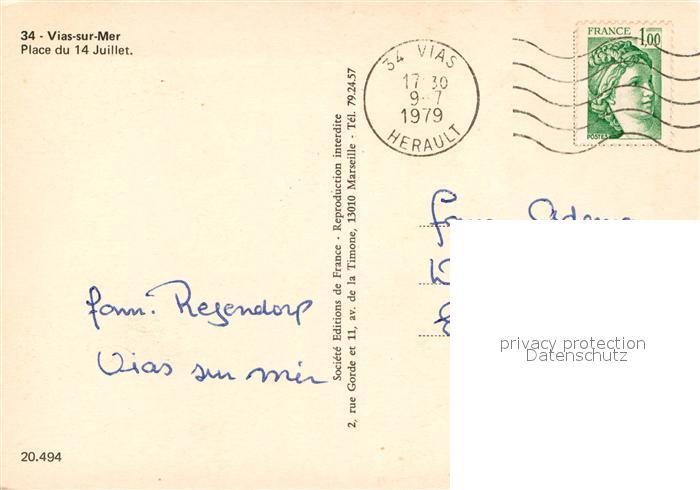 34 - Vias-sur-Mer
Place du 14 Juillet.
34 VIAS
17 30
9-7
1979
HERAULT
FRANCE 1,00
POSTES
Société Editions de France - Reproduction interdite
2, rue Gorde et 11, av. de la Timone, 13010 Marseille - Tél. 79.24.57
fam. Regendorp
Vias sur mèr
fam.
privacy protection
Datenschutz
20.494